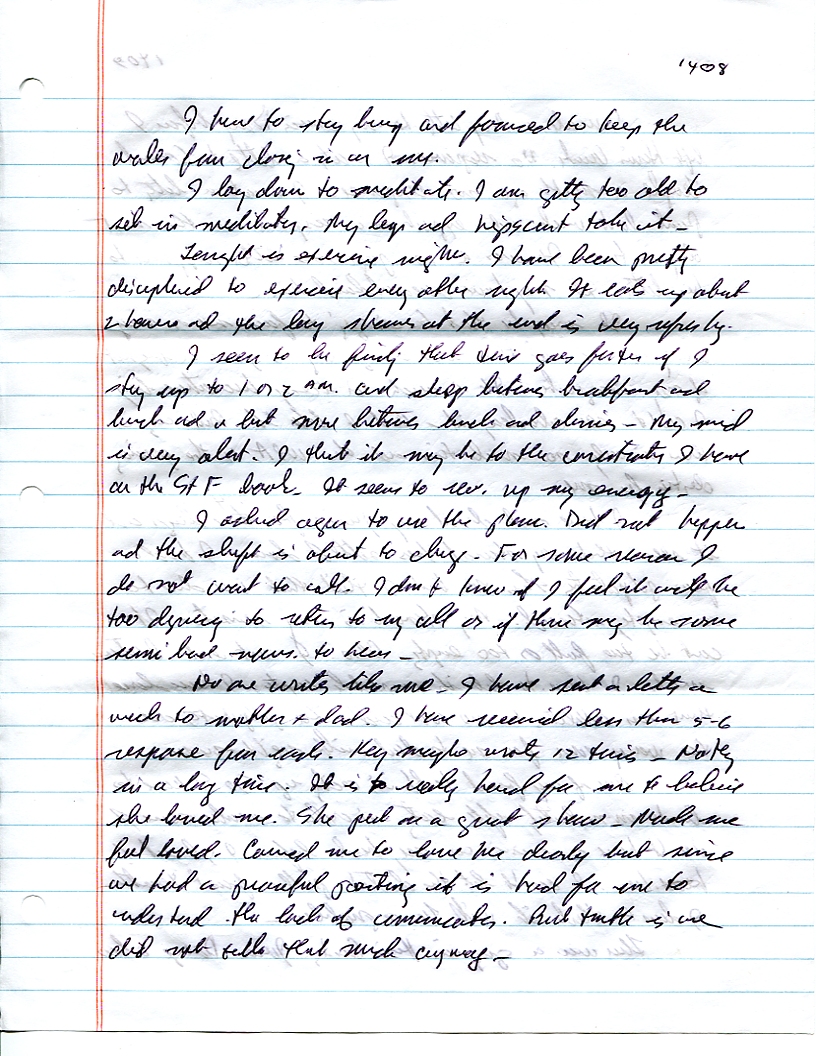 1408
I have to stay busy and focused to keep the
walls from closing in on me.
I lay down to meditate. I am getting too old to
sit in meditation. My legs and hips can't take it –
Tonight is exercise night. I have been pretty
disciplined to exercise every other night. It eats up about
2 hours and the long shower at the end is very refreshing.
I seem to be finding that time goes faster if I
stay up to 1 or 2 AM. and sleep between breakfast and
lunch and a bit more between lunch and dinner – My mind
is very alert. I think it may be to the I have
on the St F book – It seems to rev. up my energy –
I asked again to use the phone. Did not happen
and the shift is about to change. For some reason I
do not want to call. I don't know if I feel it will be
too to return to my cell or if there may be some
semi bad news. to hear –
No one writes like me – I have sent a letter a
week to mother + dad. I have received less than 5-6
response from each. Kay maybe wrote 12 times – Nothing
in a long time. It is really hard for me to believe
she loved me. She put on a great show – Made me
feel loved. Caused me to love her dearly but since
we had a peaceful parting it is hard for me to
understand the lack of communication. But truth is we
did not talk that much anyway –